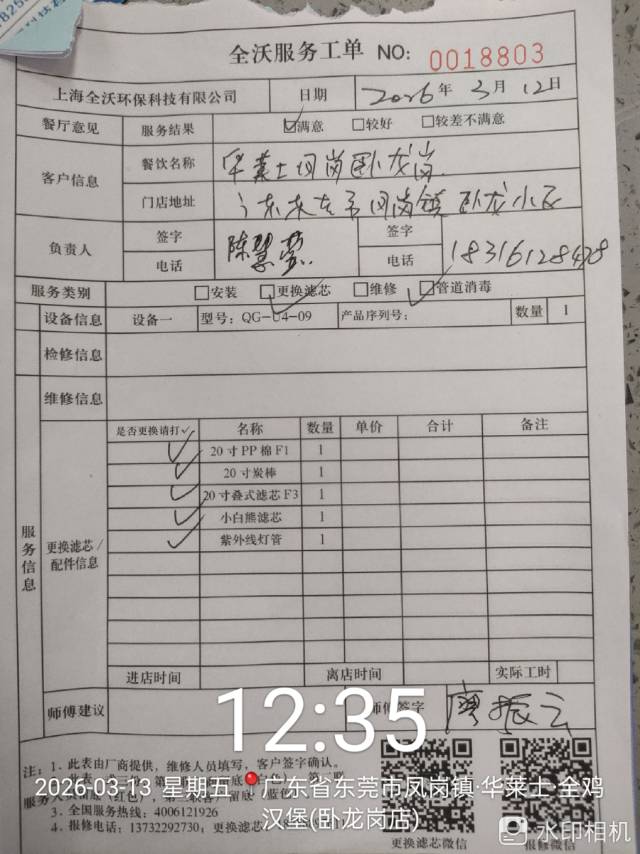 全沃服务工单 NO: 0018803
上海全沃环保科技有限公司 日期 2026年3月12日
餐厅意见 服务结果 ☑满意 □较好 □较差不满意
客户信息 餐饮名称 华莱士凤岗卧龙岗
门店地址 广东东莞市凤岗镇卧龙小区
负责人 签字 陈慧莹 签字
电话 电话 18316128428
服务类别 □安装 ☑更换滤芯 □维修 ☑管道消毒
设备信息 设备一 型号: QG-U4-09 产品序列号: 数量 1
检修信息
维修信息
服务信息
更换滤芯/配件信息
是否更换请打✓ 名称 数量 单价 合计 备注
✓ 20寸PP棉F1 1
✓ 20寸炭棒 1
✓ 20寸叠式滤芯F3 1
✓ 小白熊滤芯 1
✓ 紫外线灯管 1
进店时间 离店时间 实际工时
师傅建议 师傅签字 廖振云
12:35
注: 1. 此表由厂商提供，维修人员填写，客户签字确认。
3. 全国服务热线: 4006121926
4. 报修电话: 13732292730; 更换滤芯
更换滤芯微信 报修微信
2026-03-13 星期五 广东省东莞市凤岗镇·华莱士·全鸡
汉堡(卧龙岗店)
水印相机